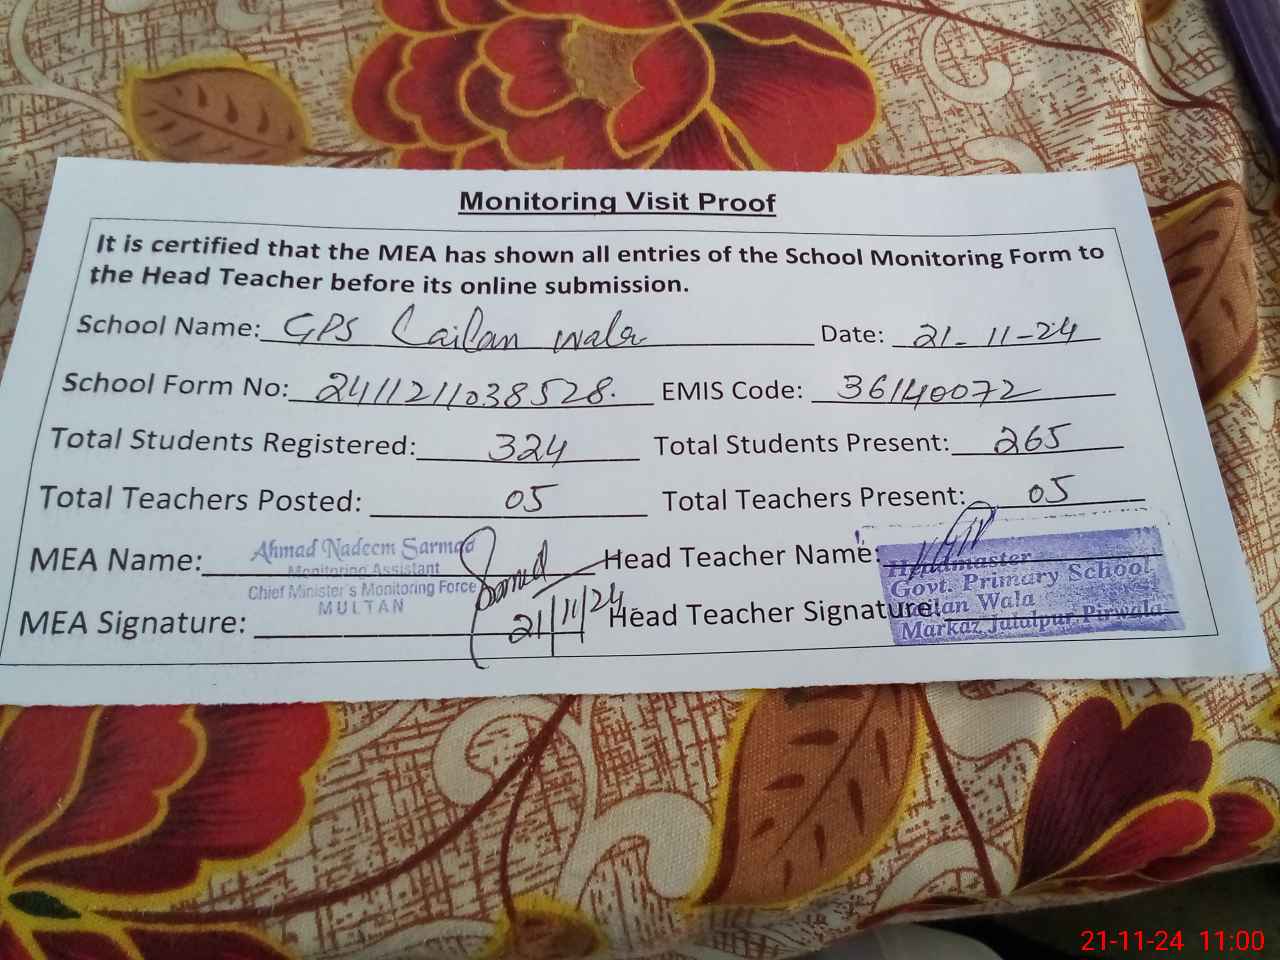 Monitoring Visit Proof
It is certified that the MEA has shown all entries of the School Monitoring Form to
the Head Teacher before its online submission.
School Name: GPS Lailan wala Date: 21-11-24
School Form No: 2411211038528. EMIS Code: 36140072
Total Students Registered: 324 Total Students Present: 265
Total Teachers Posted: 05 Total Teachers Present: 05
MEA Name: Ahmad Nadeem Sarmad Head Teacher Name:
Monitoring Assistant
Chief Minister's Monitoring Force
MULTAN
Headmaster
Govt. Primary School
Lailan Wala
Markaz Jalalpur Pirwala
MEA Signature: 21/11/24 Head Teacher Signature:
21-11-24 11:00